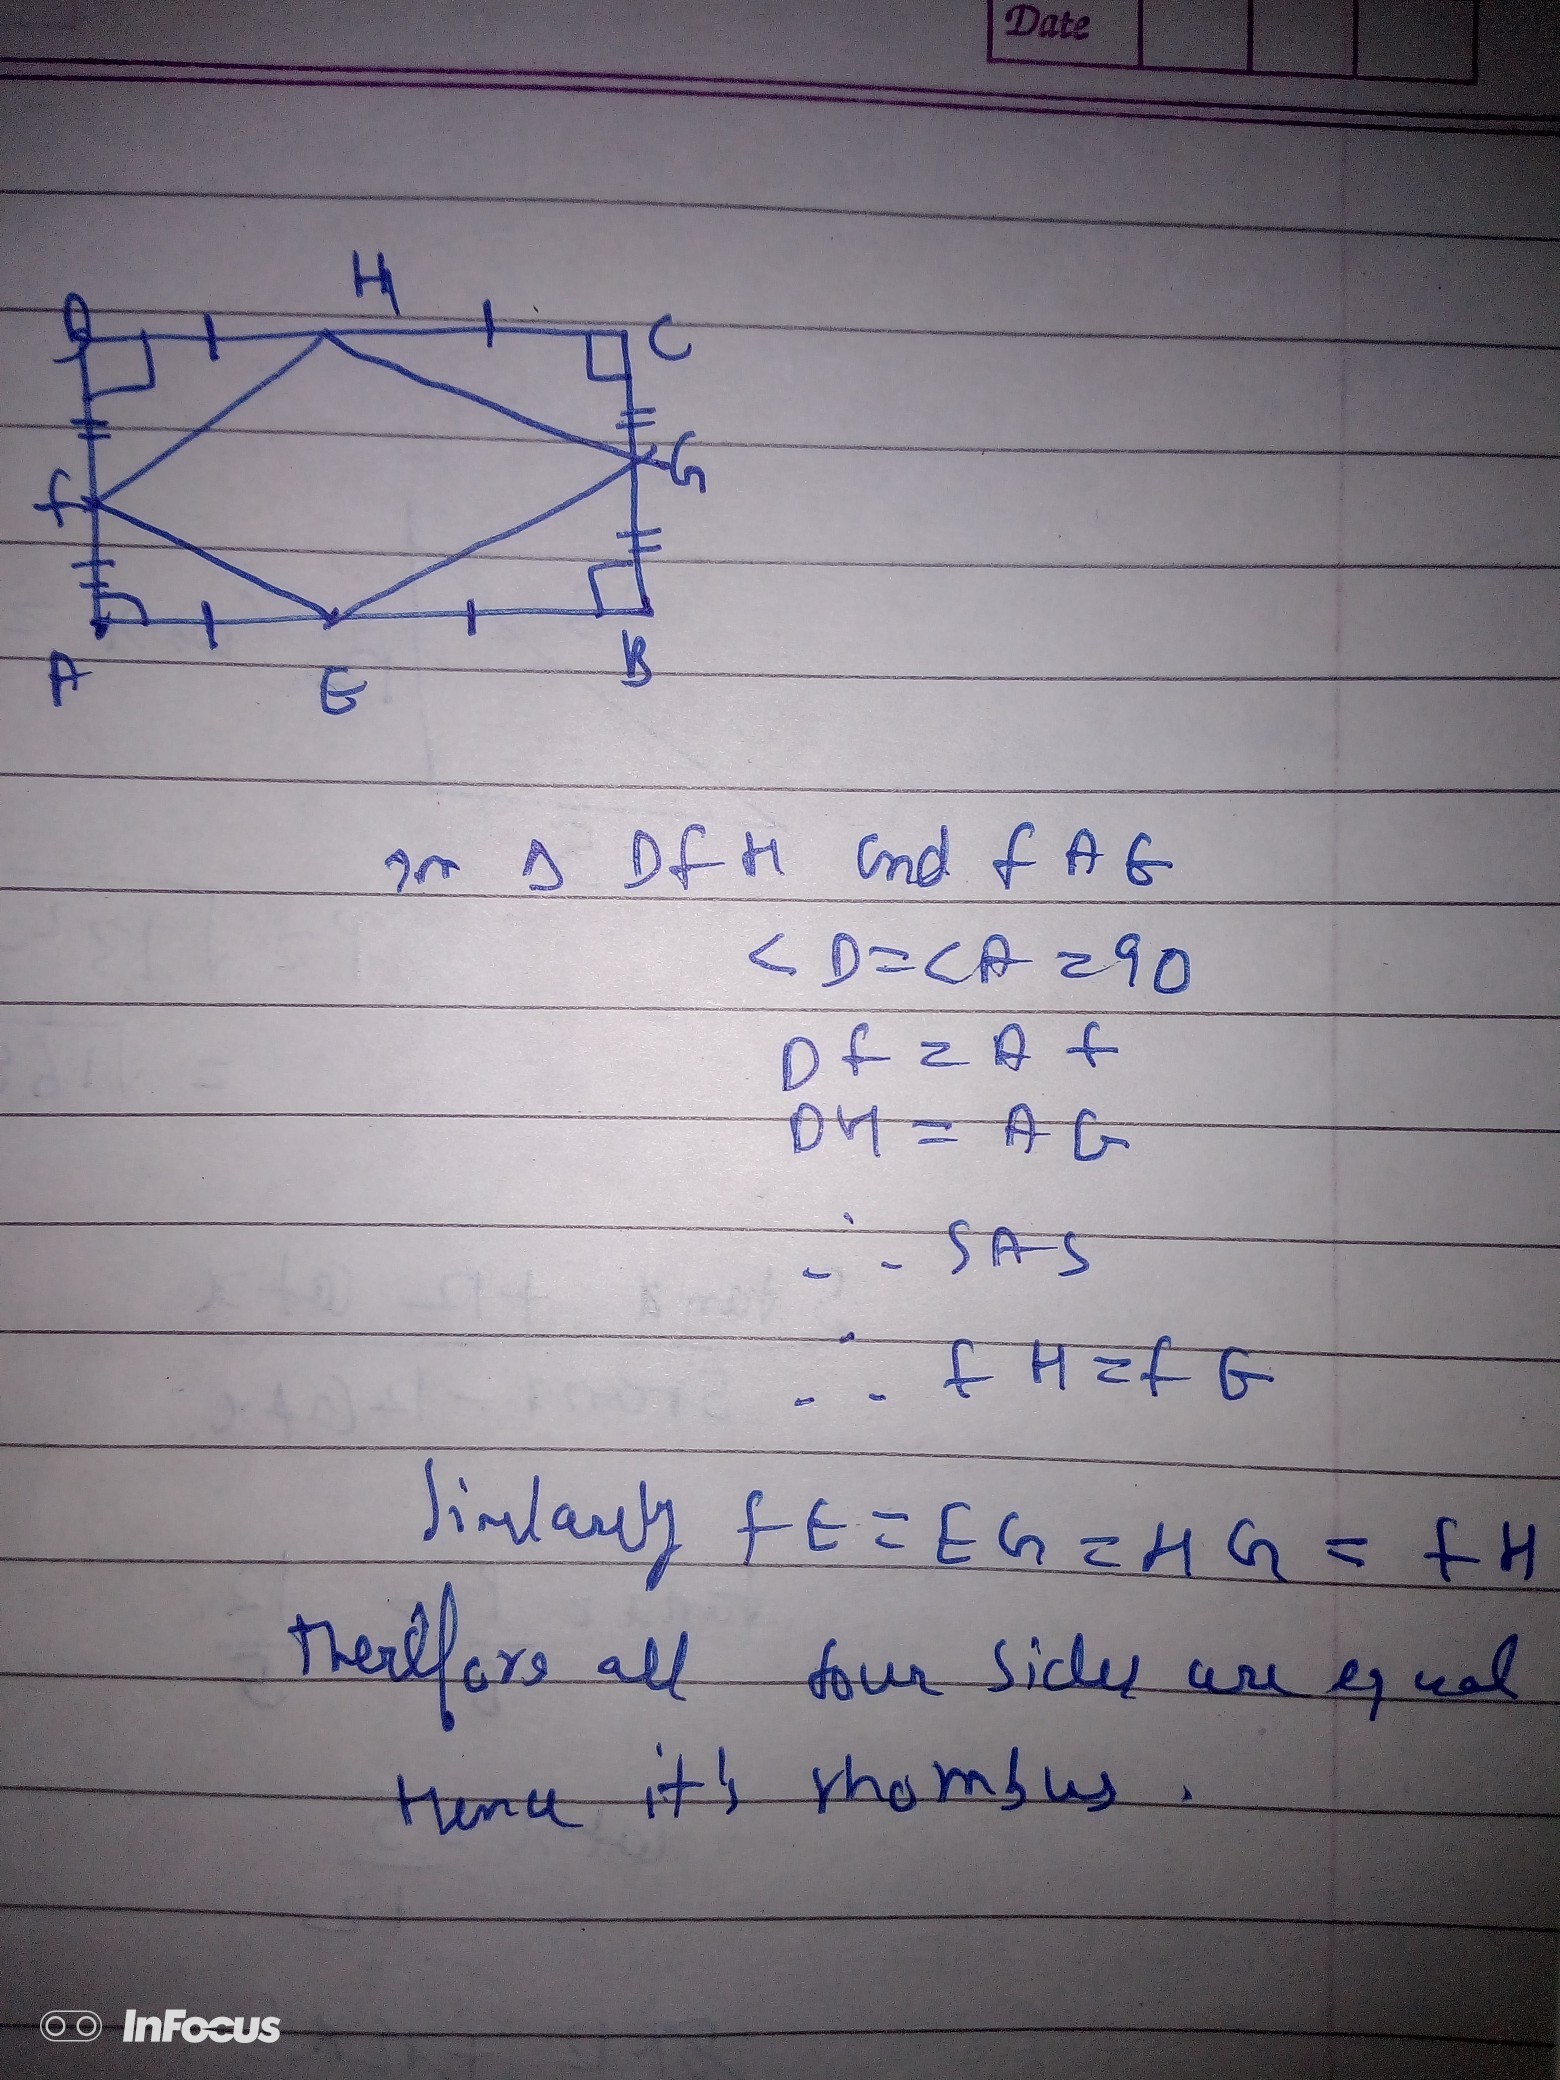 Date
H
D
C
f
G
A
E
B
In Δ DfH and fAG
<D=<A=90
Df=Af
DH=AG
∴ SAS
∴ fH=fG
Similarly fE=EG=HG=fH
therefore all four sides are equal
Hence it's rhombus.
InFocus